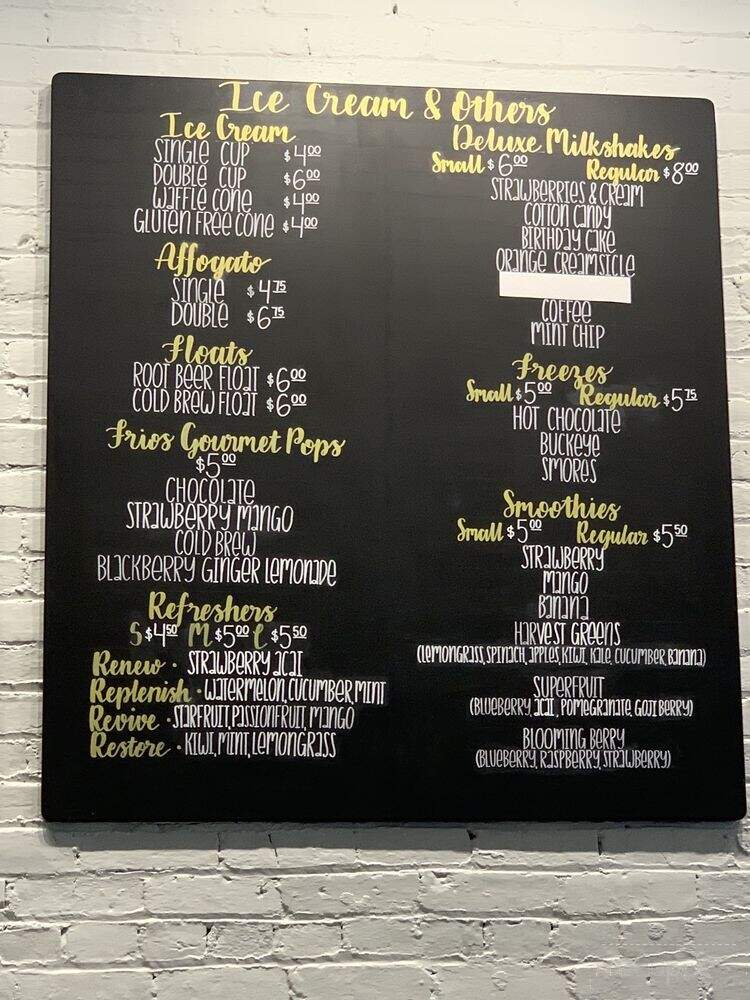 Ice Cream & Others
Ice Cream
Single Cup $4.00
Double Cup $6.00
Waffle Cone $4.00
Gluten Free Cone $4.00
Affogato
Single $4.75
Double $6.75
Floats
Root Beer Float $6.00
Cold Brew Float $6.00
Frios Gourmet Pops
$5.00
Chocolate
Strawberry Mango
Cold Brew
Blackberry Ginger Lemonade
Refreshers
S $4.50 M $5.00 L $5.50
Renew · Strawberry Acai
Replenish · Watermelon, Cucumber, Mint
Revive · Starfruit, Passionfruit, Mango
Restore · Kiwi, Mint, Lemongrass
Deluxe Milkshakes
Small $6.00 Regular $8.00
Strawberries & Cream
Cotton Candy
Birthday Cake
Orange Creamsicle
Coffee
Mint Chip
Freezes
Small $5.00 Regular $5.75
Hot Chocolate
Buckeye
Smores
Smoothies
Small $5.00 Regular $5.50
Strawberry
Mango
Banana
Harvest Greens
(Lemongrass, Spinach, Apples, Kiwi, Kale, Cucumber, Banana)
Superfruit
(Blueberry, Acai, Pomegranate, Goji Berry)
Blooming Berry
(Blueberry, Raspberry, Strawberry)